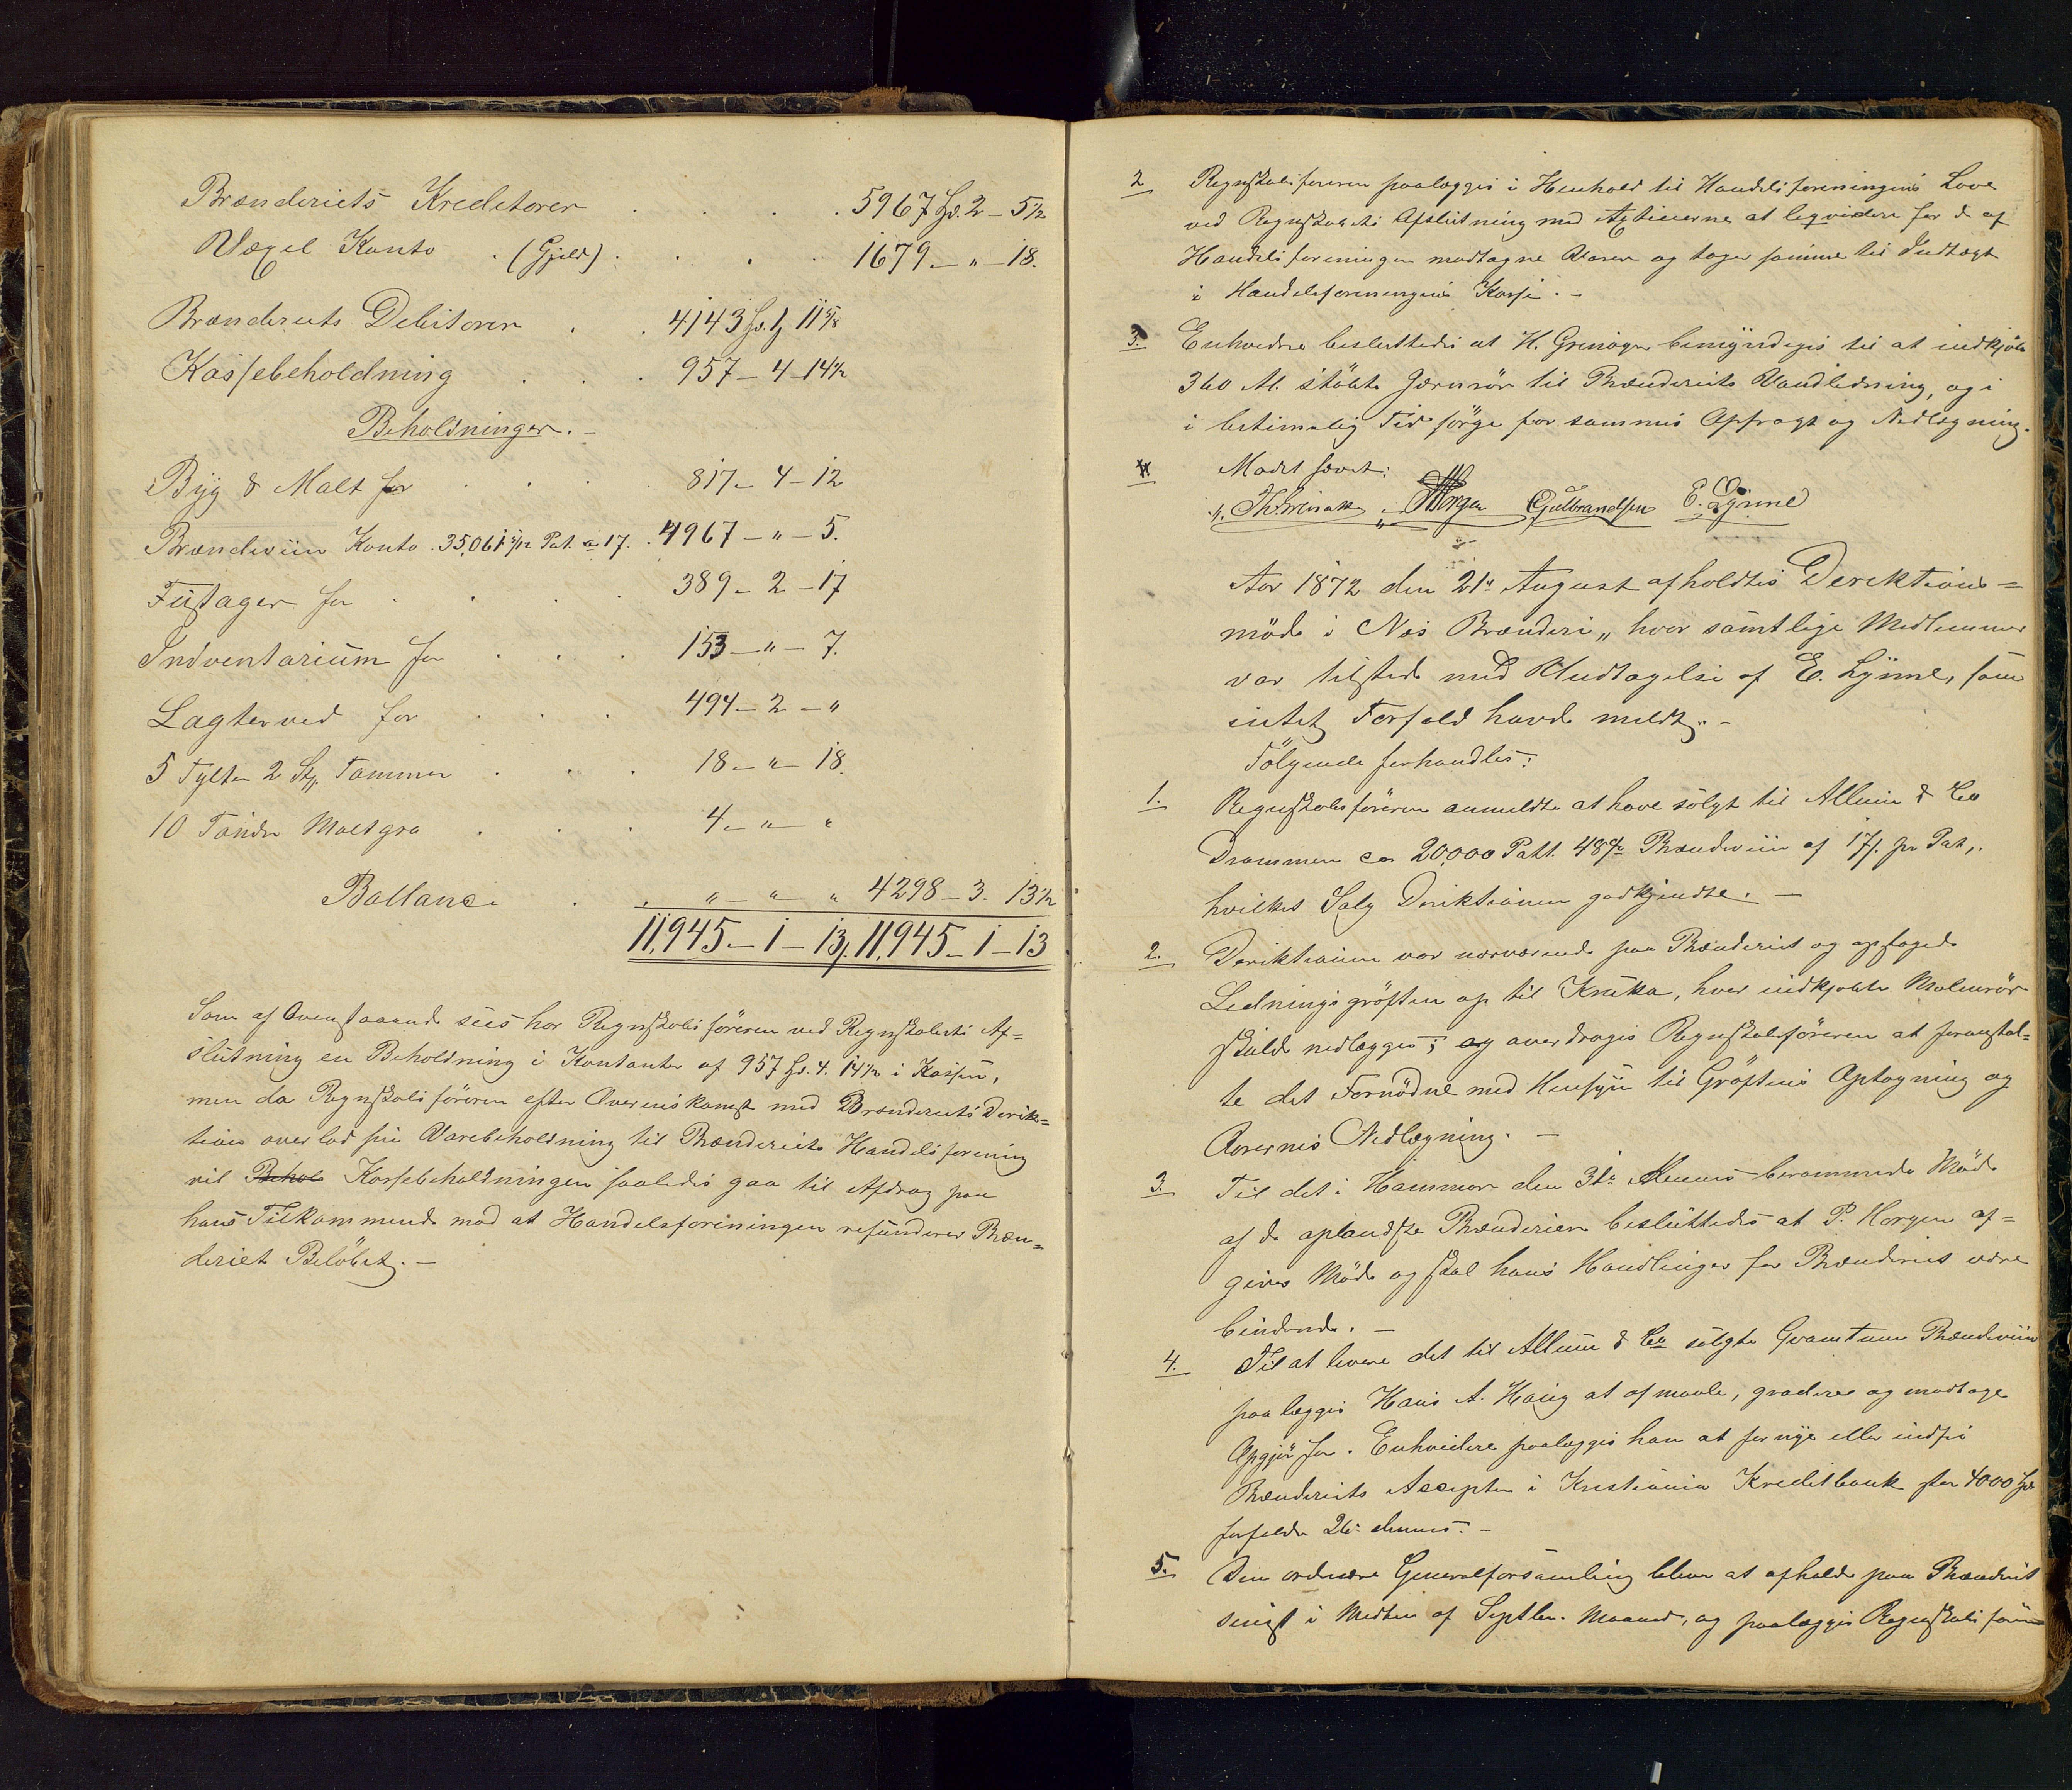 Brænderiets Kreditorer . . . . 5967 Sp. 2 – 5½
Vexel Konto . (Gjeld) . . . . 1679 – " – 18.
Brænderiets Debitorer . . 4143 Sp. 1, 11⅝
Kassebeholdning . . . 957 – 4 – 14½
Beholdninger. –
Byg & Malt for . . . 817 – 4 – 12
Brændeviin Konto . 35,061 5/12 Pot. a 17. . 4967 – " – 5.
Fustager for . . . . 389 – 2 – 17
Indventarium for . . . 153 – " – 7.
Lagterved for . . . 494 – 2 – "
5 Tylter 2 Stk. Tømmer . . . 18 – " – 18.
10 Tønder Maltgro . . . 4 – " – "
Ballance . . " – " – " 4298 – 3 – 13½
11,945 – 1 – 13, 11,945 – 1 – 13
Som af Ovenstaaende sees har Regnskabsføreren ved Regnskabets Af=
slutning en Beholdning i Kontanter af 957 Sp. 4. 14½ i Kassen,
men da Regnskabsføreren efter Overenskomst med Brænderiets Direk=
tion overlod sin Varebeholdning til Brænderiets Handelsforening
vil Behol Kassebeholdningen saaledes gaa til Afdrag paa
hans Tilkommende mod at Handelsforeningen refunderer Bræn=
deriet Beløbet. –
2 Regnskabsføreren paalægges i Henhold til Handelsforeningens Love
ved Regnskabets Afslutning med Actierne at leqvidere for de af
Handelsforeningen modtagne Varer og tager samme til Indtægt
i Handelsforeningens Kasse. –
3. Enhvidere besluttedes at H. Grenager bemyndiges til at indkjøbe
360 Al. støbte Jernrør til Brænderiets Vandledning, og i
i betimelig Tid sørge for sammes Opfragt og Nedlægning.
4 Mødet hævet:
Horgen Gulbrandsen E. Lynne
Aar 1872 den 21de August afholdtes Derektions=
møde i Næs Brænderi, hvor samtlige Medlemmer
var tilstede med Undtagelse af E. Lynne, som
intet Forfald havde meldt. –
Følgende forhandles:
1. Regnskabsføreren anmeldte at have solgt til Allum & Co
Drammen ca 20,000 Pott. 48gr Brændeviin af 17 s. pr Pot,
hvilket Salg Direktionen godkjendte. –
2. Direktionen var nærværende paa Brænderiet og opsagede
Ledningsgrøften op til Kruka, hvor indkjøbte Molenrør
skulde nedlægges; og overdroges Regnskabsføreren at foranstal=
te det Fornødne med Hensyn til Grøftens Optagning og
Rørernes Nedlægning. –
3. Til det i Hammar den 31te dennes berammede Møde
af de oplandske Brænderier besluttedes at P. Horgen af=
giver Møde og skal hans Handlinger for Brænderiet være
bindende. –
4. Til at levere det til Allum & Co solgte Qvantum Brændeviin
paalægges Hans A. Haug at afmaale, gradere og modtage
Opgjør for. Enhvidere paalægges han at fornye eller indfri
Brænderiets Accepter i Kristiania Kreditbank stor 4000 Sp
forfalder 26de dennes. –
5. Den ordinære Generalforsamling bliver at afholde paa Brænderiet
senest i Midten af Septbr. Maaned, og paalægges Regnskabsføre